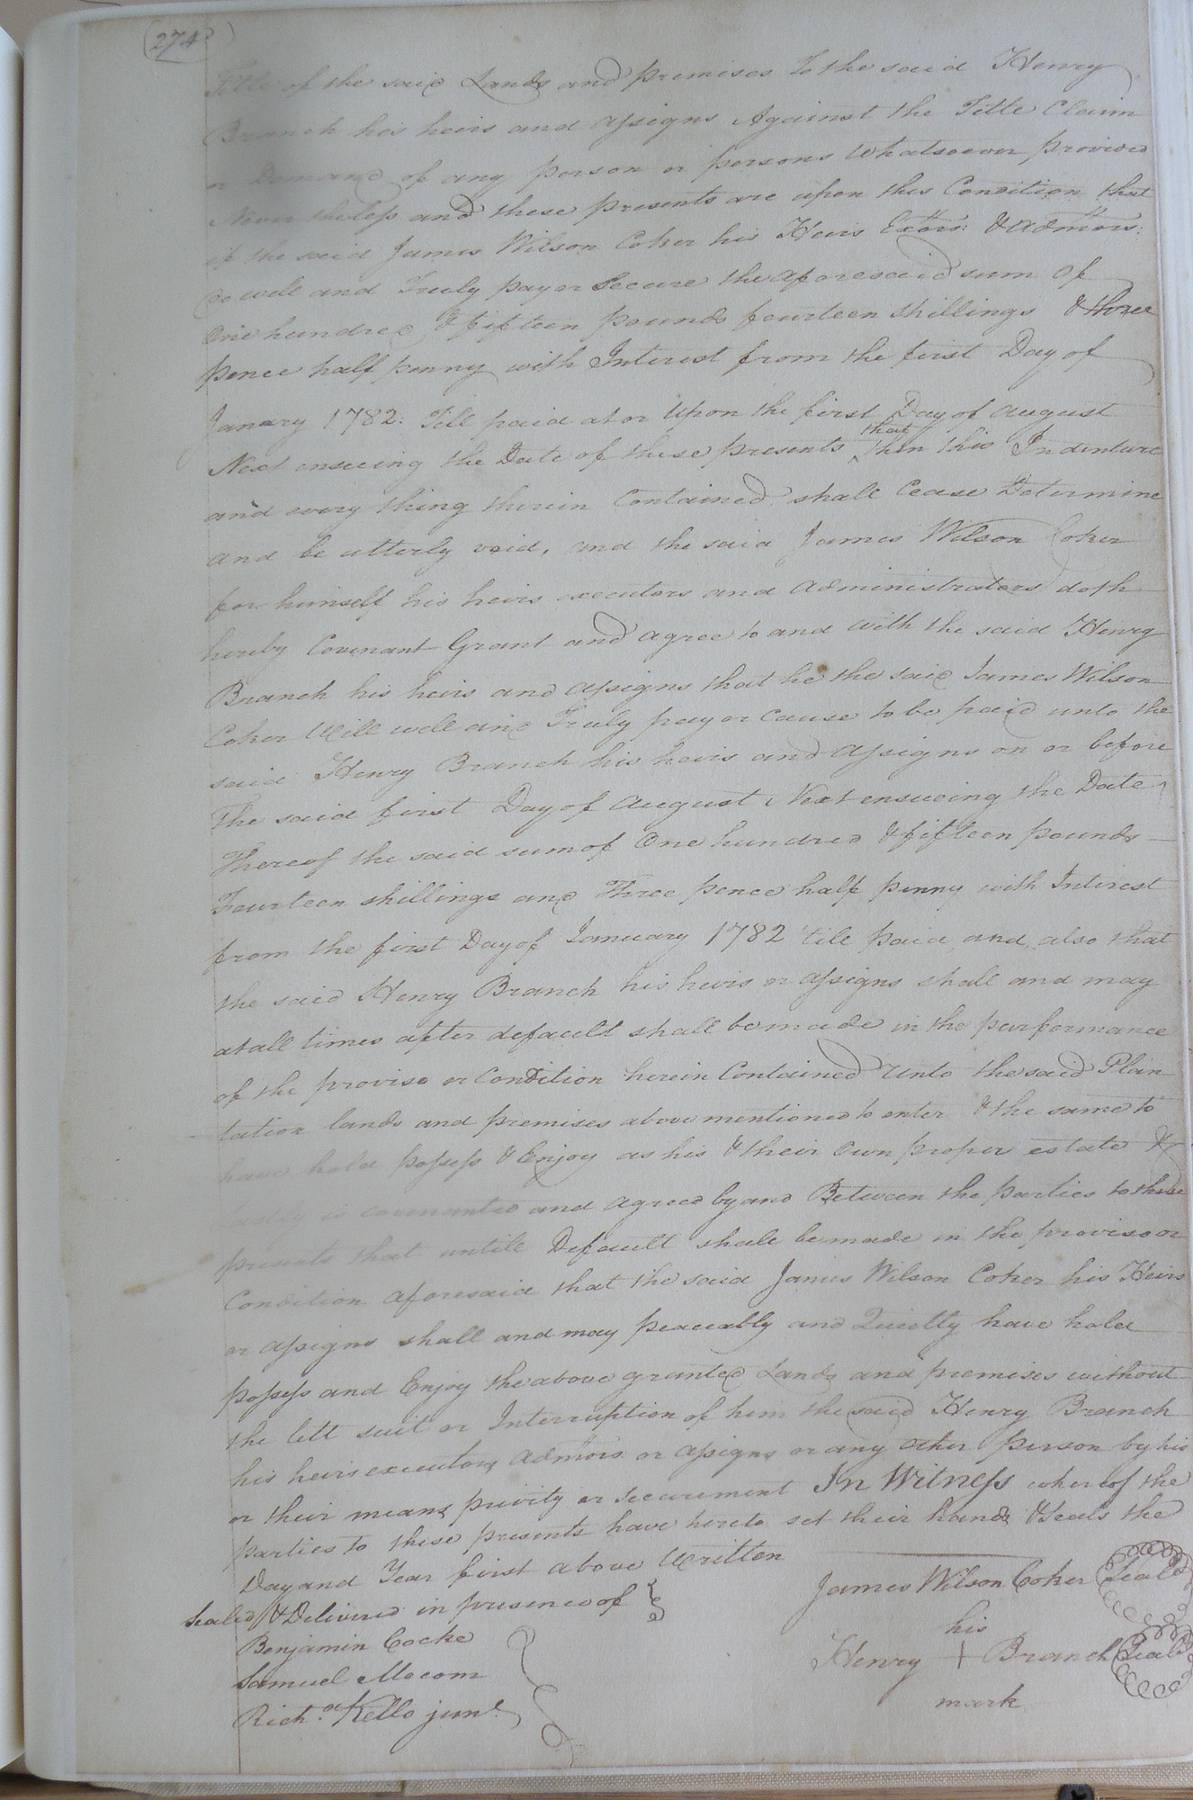 (274)
Title of the said Lands and premises to the said Henry
Branch his heirs and assigns Against the Title Claim
or Demand of any person or persons Whatsoever provided
Never theless and these presents are upon this Condition that
if the said James Wilson Coker his Heirs Extors: & Admors:
do well and Truly pay or Secure the aforesaid sum Of
One hundred & fifteen pounds fourteen shillings & three
pence half penny with Interest from the first Day of
Janary 1782: Till paid at or Upon the first Day of August
Next enseeing the Date of these presents that then this Indenture
and every thing therein Contained shall Cease Determine
and be utterly void, and the said James Wilson Coker
for himself his heirs executors and administrators doth
hereby Covenant Grant and agree to and with the said Henry
Branch his heirs and assigns that he the said James Wilson
Coker Will well and Truly pay or cause to be paid unto the
said Henry Branch his heirs and assigns on or before
The said first Day of August Next ensueing the Date
Thereof the said sum of One hundred & fifteen pounds
Fourteen shillings and Three pence half penny with Interest
from the first Day of January 1782 'till paid and also that
the said Henry Branch his heirs or assigns shall and may
at all times after default shall be made in the performance
of the proviso or Condition herein Contained Unto the said Plan
tation lands and premises above mentioned to enter & the same to
have hold possess & Enjoy as his & their own proper estate &
lastly is covenanted and agreed by and Between the parties to these
presents that untill Default shall be made in the proviso or
Condition aforesaid that the said James Wilson Coker his Heirs
or assigns shall and may peaceably and Quietly have hold
possess and Enjoy the above granted Lands and premises without
the lett suit or Interruption of him the said Henry Branch
his heirs executors Admors or assigns or any other person by his
or their means privity or securement In Witness whereof the
parties to these presents have hereto set their hands & Seals the
Day and Year first above Written
Sealed & Delivered in presence of
James Wilson Coker Seal
Benjamin Cocke
his
Samuel Mecom
Henry + Branch Seal
Richd. Kello junr.
mark